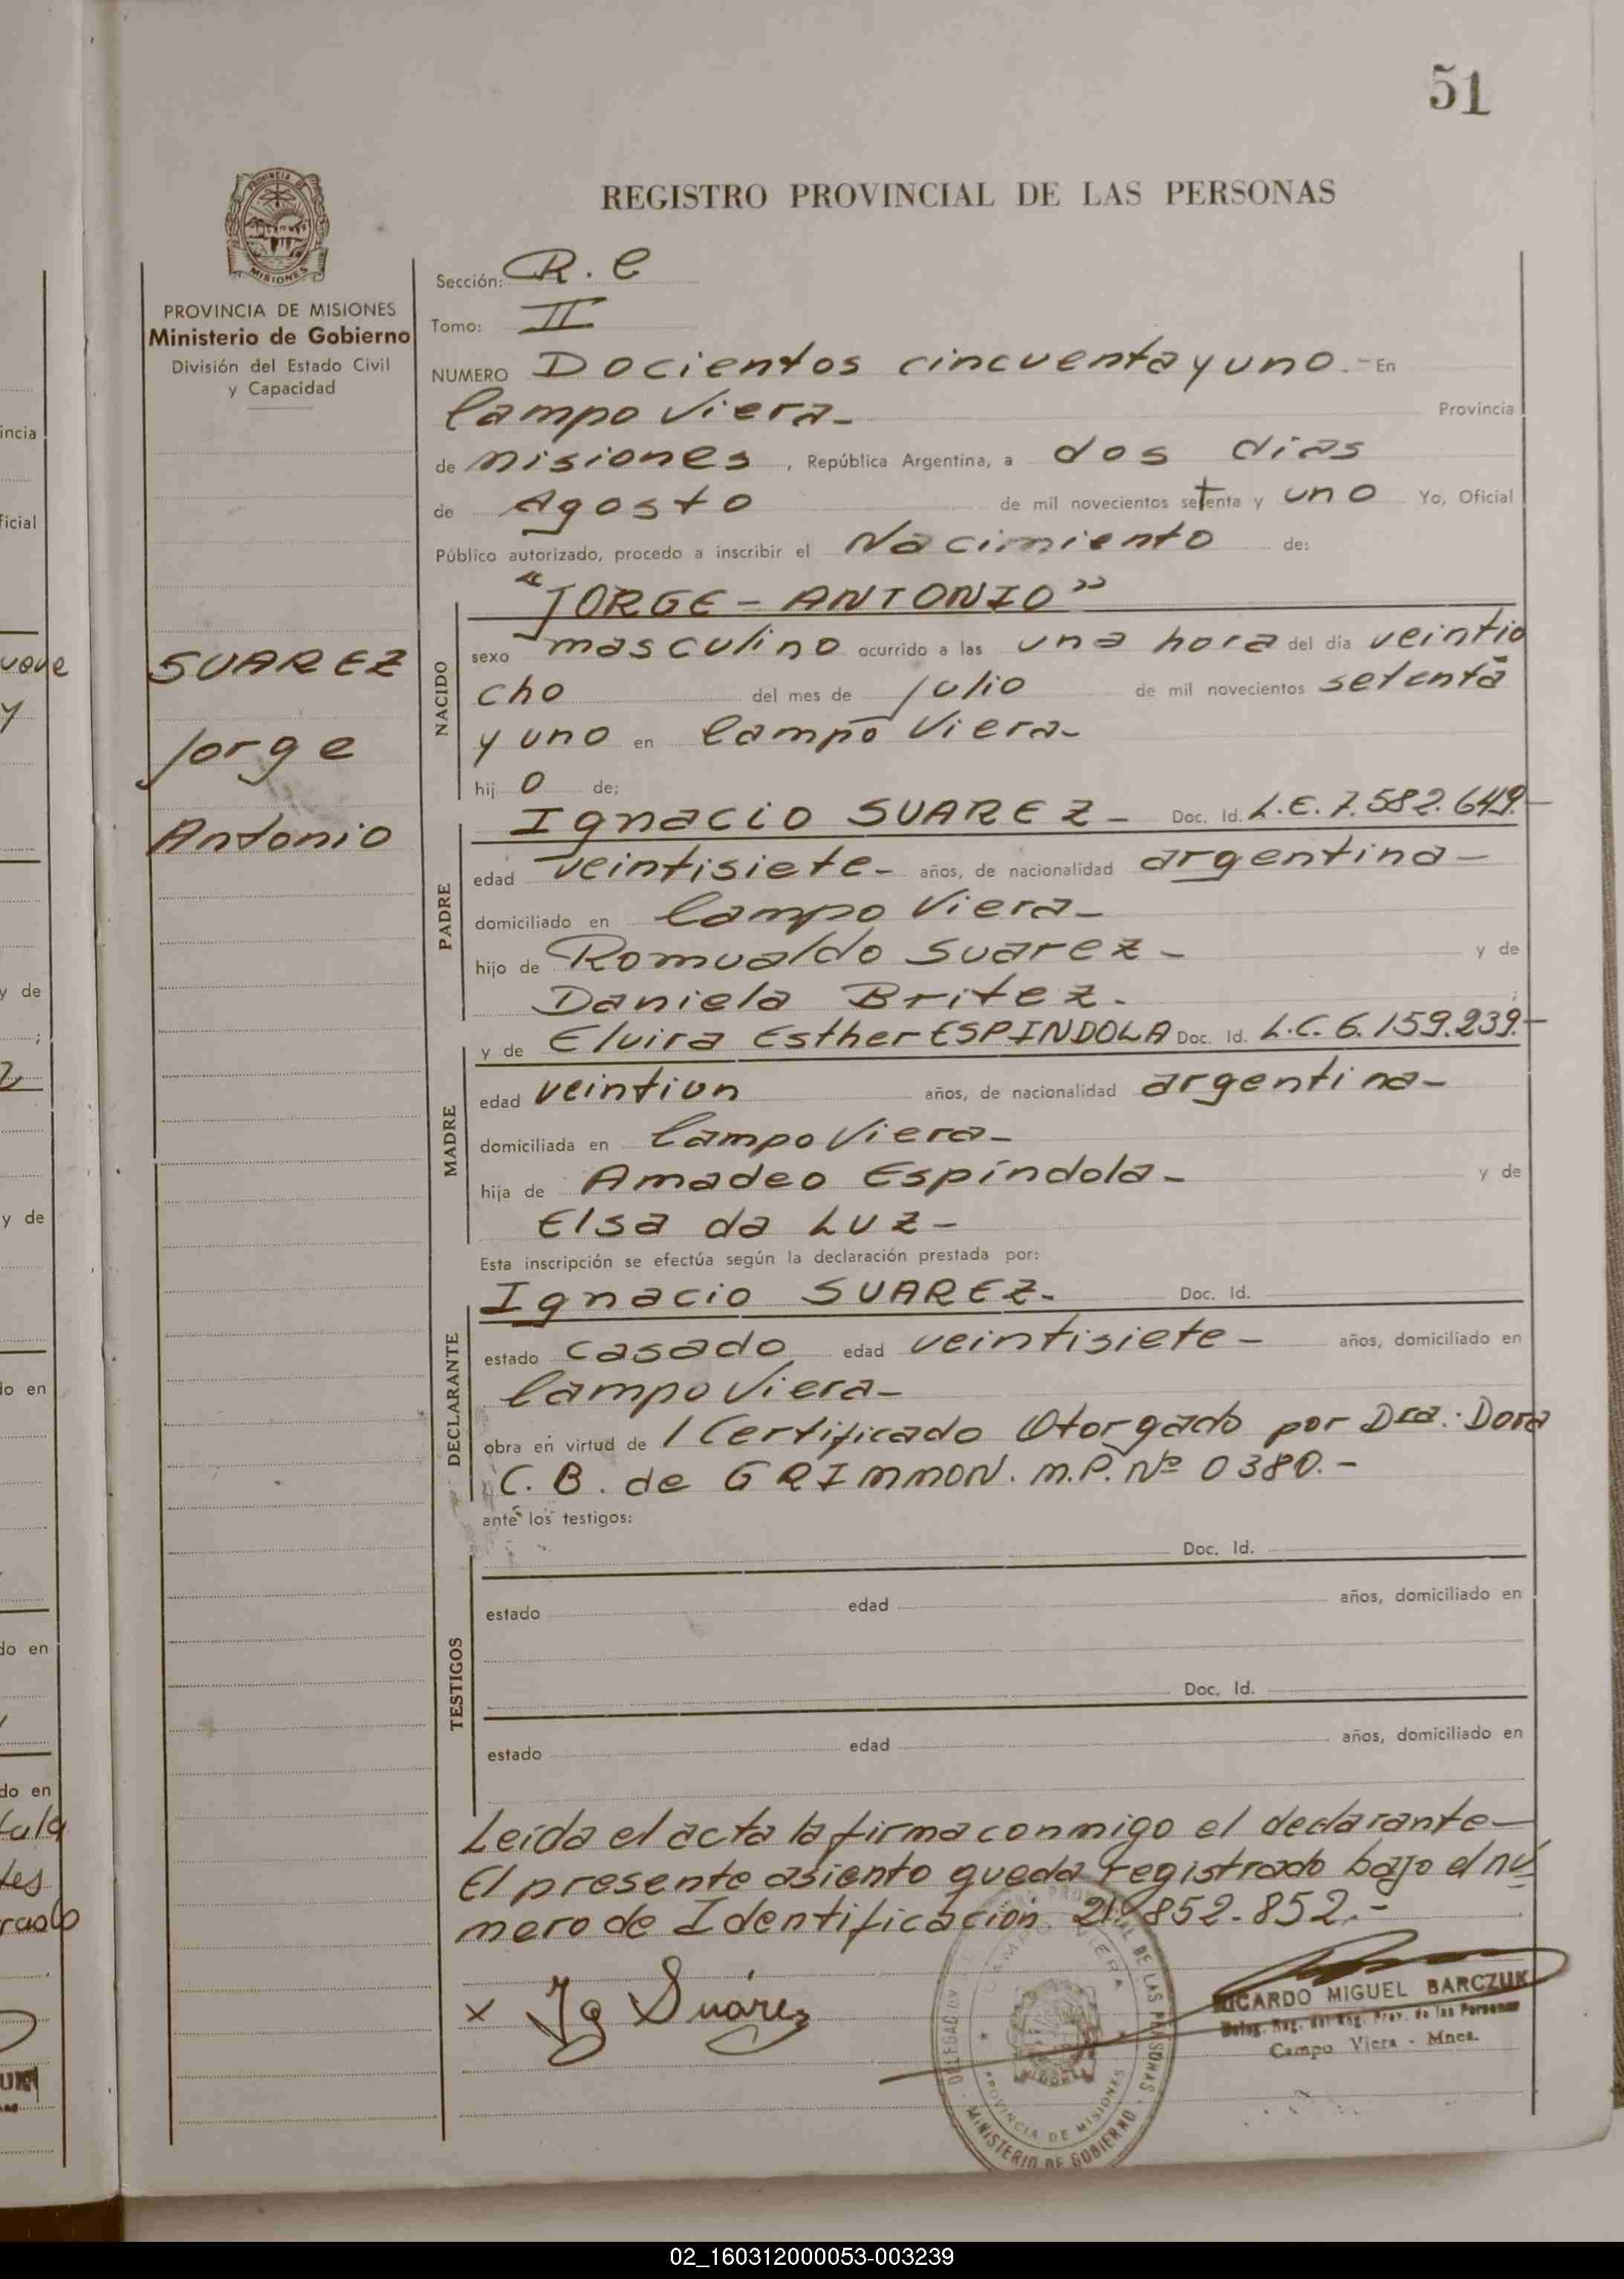 51
REGISTRO PROVINCIAL DE LAS PERSONAS
PROVINCIA DE MISIONES
Ministerio de Gobierno
División del Estado Civil
y Capacidad
SUAREZ
Jorge
Antonio
Sección: R. C
Tomo: II
NUMERO Docientos cincuenta y uno.- En
Campo Viera- Provincia
de Misiones, República Argentina, a dos dias
de Agosto de mil novecientos setenta y uno Yo, Oficial
Público autorizado, procedo a inscribir el Nacimiento de:
"JORGE-ANTONIO"
NACIDO
sexo masculino ocurrido a las una hora del día veintio
cho del mes de julio de mil novecientos setenta
y uno en Campo Viera-
hij o de;
PADRE
Ignacio SUAREZ- Doc. Id. L.E. 7.582.649.-
edad veintisiete- años, de nacionalidad argentina-
domiciliado en Campo Viera-
hijo de Romualdo Suarez- y de
Daniela Britez. ;
MADRE
y de Elvira Esther ESPINDOLA Doc. Id. L.C. 6.159.239.-
edad veintiun años, de nacionalidad argentina-
domiciliada en Campo Viera-
hija de Amadeo Espíndola- y de
Elsa da Luz-
Esta inscripción se efectúa según la declaración prestada por:
DECLARANTE
Ignacio SUAREZ. Doc. Id.
estado casado edad veintisiete- años, domiciliado en
Campo Viera-
obra en virtud de 1 Certificado Otorgado por Dra.: Dora
C. B. de GRIMMON. M.P. Nº 0380.-
ante los testigos:
TESTIGOS
Doc. Id.
estado edad años, domiciliado en
Doc. Id.
estado edad años, domiciliado en
Leída el acta la firma conmigo el declarante-
El presente asiento queda registrado bajo el nú
mero de Identificación 21.852.852.-
x Ig Suárez
DELEGACION REGISTRO PROVINCIAL DE LAS PERSONAS
CAMPO VIERA
PROVINCIA DE MISIONES
MINISTERIO DE GOBIERNO
RICARDO MIGUEL BARCZUK
Deleg. Reg. del Reg. Prov. de las Personas
Campo Viera - Mnes.
02_160312000053-003239